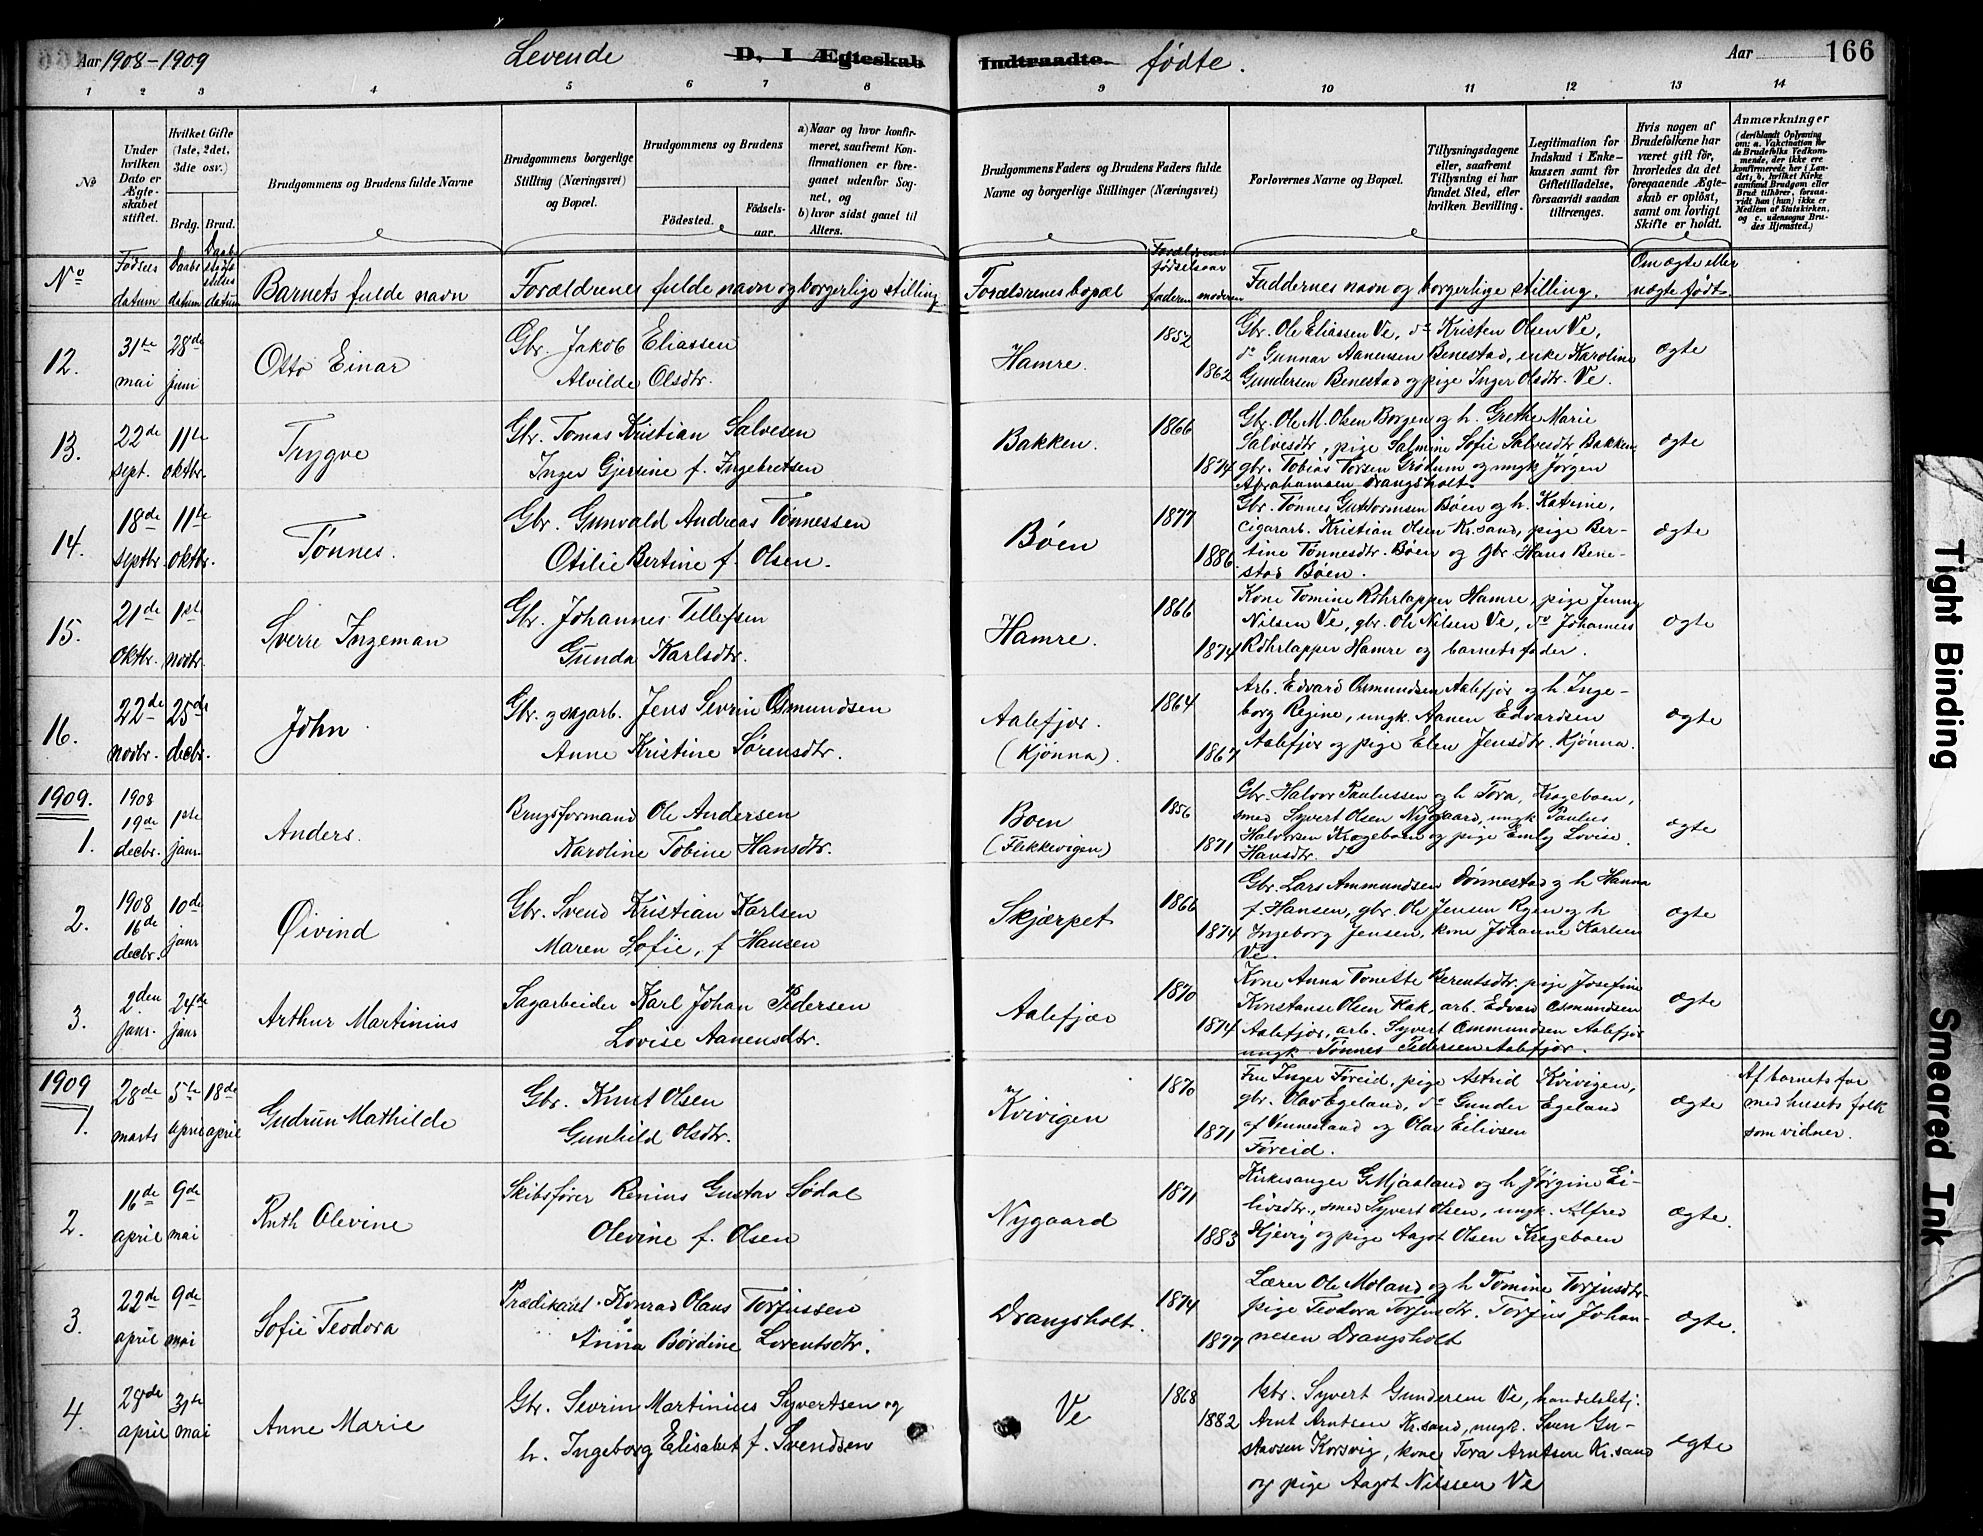 Aar 1908-1909 Levende D. I Ægteskab Indtraadte. fødte. Aar 166
1 2 3 4 5 6 7 8 9 10 11 12 13 14
No
Under hvilken Dato er Ægteskabet stiftet.
Hvilket Gifte (1ste, 2det, 3die osv.)
Brdg. Brud.
Brudgommens og Brudens fulde Navne
Brudgommens borgerlige Stilling (Næringsvei) og Bopæl.
Brudgommens og Brudens
Fødested. Fødselsaar.
a) Naar og hvor konfirmeret, saafremt Konfirmationen er foregaaet udenfor Sognet, og
b) hvor sidst gaaet til Alters.
Brudgommens Faders og Brudens Faders fulde Navne og borgerlige Stillinger (Næringsvei)
Forlovernes Navne og Bopæl.
Tillysningsdagene eller, saafremt Tillysning ei har fundet Sted, efter hvilken Bevilling.
Legitimation for Indskud i Enkekassen samt for Giftetilladelse, forsaavidt saadan tiltrænges.
Hvis nogen af Brudefolkene har været gift før, hvorledes da det foregaaende Ægteskab er opløst, samt om lovligt Skifte er holdt.
Anmærkninger
(deriblandt Oplysning om: a. Vakcination for de Brudefolks Vedkommende, der ikke ere konfirmerede her i Landet; b, hvilket Kirkesamfund Brudgom eller Brud tilhører, forsaavidt han (hun) ikke er Medlem af Statskirken, og c. udensogns Brudes Hjemsted.)
No Fødsels datum Daabs datum Daabs stadfæstelses datum Barnets fulde navn Forældrenes fulde navn og borgerlige stilling Forældrenes bopæl Forældrenes fødselsaar faderen moderen Faddernes navn og borgerlige stilling. Om ægte eller uægte født.
12. 31te mai 28de juni Otto Einar
Gbr. Jakob Eliassen
Alvilde Olsdtr.
Hamre. 1852 1862
Gbr. Ole Eliassen Ve, do Kristen Olsen Ve,
do Gunnar Aanensen Benestad, enke Karoline
Gundersen Benestad og pige Inger Olsdtr. Ve.
ægte
13. 22de sept. 11te oktbr. Trygve
Gbr. Tomas Kristian Salvesen
Inger Gjersine f. Ingebretsen
Bakken. 1866 1874
Gbr. Ole M. Olsen Borgen og h. Grethe Marie
Salvesdtr, pige Salmine Sofie Salvesdtr Bakken,
gbr. Tobias Torsen Grødum og ungk Jørgen
Abrahamsen Drangsholt.
ægte
14. 18de septbr. 11te oktbr. Tønnes.
Gbr. Gunvald Andreas Tønnessen
Otilie Bertine f. Olsen.
Bøen 1877 1886
Gbr. Tønnes Guttormsen Bøen og h. Katrine,
cigararb. Kristian Olsen Kr.sand, pige Ber-
tine Tønnesdtr. Bøen og gbr Hans Bene-
stad Bøen.
ægte
15. 21de oktbr. 1ste novbr. Sverre Ingeman
Gbr. Johannes Tellefsen
Gunda Karlsdtr.
Hamre. 1866 1874
Kone Tomine Rohrlapper Hamre, pige Jenny
Nilsen Ve, gbr. Ole Nilsen Ve, do Johannes
Rohrlapper Hamre og barnets fader.
ægte
16. 22de novbr. 25de decbr. John.
Gbr. og sagarb. Jens Sevrin Osmundsen
Anne Kristine Sørensdtr.
Aalefjær. (Kjønna). 1864 1867
Arb. Edvard Osmundsen Aalefjær og h. Inge-
borg Regine, ungk. Aanen Edvardsen
Aalefjær og pige Elen Jensdtr. Kjønna.
ægte
1909.
1. 1908 19de decbr. 1ste janr. Anders.
Brugsformand Ole Andersen
Karoline Tobine Hansdtr.
Boen (Flekkevigen) 1856 1871
Gbr. Halvor Paulussen og h Tora, Krageboen,
smed Syvert Olsen Nygaard, ungk Paulus
Halvorsen Krageboen og pige Emly Lovise
Hansdtr. do
ægte
2. 1908 16de decbr. 10de janr Øivind
Gbr. Svend Kristian Karlsen
Maren Sofie, f Hansen
Skjærpet 1866 1874
Gbr. Lars Ammundsen Dønnestad og h Hanna
f. Hansen, gbr. Ole Jensen Ryen og h
Ingeborg Jensen, kone Johanne Karlsen
Ve.
ægte
3. 2den janr. 24de janr Arthur Martinius
Sagarbeider Karl Johan Pedersen
Lovise Aanensdtr.
Aalefjær 1870 1874
Kone Anna Tonette Berentsdtr, pige Josefine
Konstanse Olsen Flak, arb. Edvard Osmundsen
Aalefjær, arb. Syvert Ommundsen Aalefjær
ungk Tønnes Pedersen Aalefjær.
ægte
1909
1. 28de marts 5te april 18de april Gudrun Mathilde
Gbr. Knut Olsen
Gunhild Olsdtr.
Kvivigen 1870 1871
Fru Inger Føreid, pige Astrid Kvivigen,
gbr. Olav Egeland, do Gunder Egeland
af Vennesland og Olav Eilivsen
Føreid.
ægte
Af barnets far
med husets folk
som vidner.
2. 16de april 9de mai Ruth Olevine
Skibsfører Renius Gustav Sødal
Olevine f. Olsen
Nygaard 1871 1883
Kirkesanger G. Mjaaland og h Jørgine Ei-
livsdtr., smed Syvert Olsen, ungk. Alfred
Kjevig og pige Aagot Olsen Krageboen
ægte.
3. 22de april 9de mai Sofie Teodora
Prædikant. Konrad Olaus Torjussen
Anna Børdine Lorentsdtr.
Drangsholt. 1874 1877
Lærer Ole Moland og h Tomine Torjusdtr.
pige Teodora Torjusdtr. Torjus Johan-
nesen Drangsholt
ægte.
4. 28de april 31te mai Anne Marie
Gbr. Sevrin Martinius Syvertsen og
h. Ingeborg Elisabet f. Svendsen
Ve 1868 1882
Gbr. Syvert Gundersen Ve, handelsbetj.
Arnt Arntsen Kr.sand, ungk. Sven Gu-
stavsen Korsvig, kone Tora Arntsen Kr.sand
og pige Aagot Nilssen Ve
ægte
Tight Binding
Smeared Ink